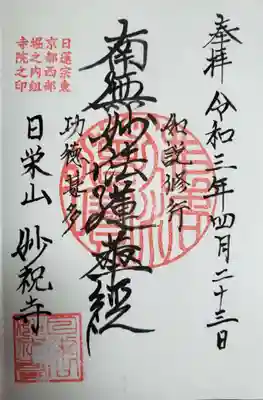 奉拝 令和三年四月二十三日
如説修行
南無妙法蓮華経
功徳甚多
日蓮宗東
京都西部
堀之内組
寺院之印
日栄山 妙祝寺